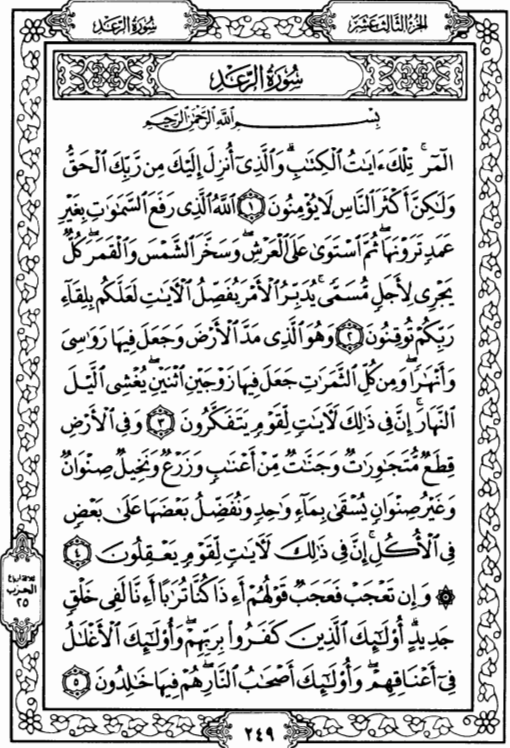 سورة الرعد
الجزء الثالث عشر
سورة الرعد
بِسْمِ اللَّهِ الرَّحْمَٰنِ الرَّحِيمِ
الٓمٓرۚ تِلْكَ ءَايَٰتُ ٱلْكِتَٰبِۗ وَٱلَّذِىٓ أُنزِلَ إِلَيْكَ مِن رَّبِّكَ ٱلْحَقُّ
وَلَٰكِنَّ أَكْثَرَ ٱلنَّاسِ لَا يُؤْمِنُونَ ١ ٱللَّهُ ٱلَّذِى رَفَعَ ٱلسَّمَٰوَٰتِ بِغَيْرِ
عَمَدٍ تَرَوْنَهَاۖ ثُمَّ ٱسْتَوَىٰ عَلَى ٱلْعَرْشِۖ وَسَخَّرَ ٱلشَّمْسَ وَٱلْقَمَرَۖ كُلٌّ
يَجْرِى لِأَجَلٍ مُّسَمًّىۚ يُدَبِّرُ ٱلْأَمْرَ يُفَصِّلُ ٱلْءَايَٰتِ لَعَلَّكُم بِلِقَآءِ
رَبِّكُمْ تُوقِنُونَ ٢ وَهُوَ ٱلَّذِى مَدَّ ٱلْأَرْضَ وَجَعَلَ فِيهَا رَوَٰسِىَ
وَأَنْهَٰرًاۖ وَمِن كُلِّ ٱلثَّمَرَٰتِ جَعَلَ فِيهَا زَوْجَيْنِ ٱثْنَيْنِۖ يُغْشِى ٱلَّيْلَ
ٱلنَّهَارَۚ إِنَّ فِى ذَٰلِكَ لَءَايَٰتٍ لِّقَوْمٍ يَتَفَكَّرُونَ ٣ وَفِى ٱلْأَرْضِ
قِطَعٌ مُّتَجَٰوِرَٰتٌ وَجَنَّٰتٌ مِّنْ أَعْنَٰبٍ وَزَرْعٌ وَنَخِيلٌ صِنْوَانٌ
وَغَيْرُ صِنْوَانٍ يُسْقَىٰ بِمَآءٍ وَٰحِدٍ وَنُفَضِّلُ بَعْضَهَا عَلَىٰ بَعْضٍ
فِى ٱلْأُكُلِۚ إِنَّ فِى ذَٰلِكَ لَءَايَٰتٍ لِّقَوْمٍ يَعْقِلُونَ ٤
۞ وَإِن تَعْجَبْ فَعَجَبٌ قَوْلُهُمْ أَءِذَا كُنَّا تُرَٰبًا أَءِنَّا لَفِى خَلْقٍ
جَدِيدٍۗ أُو۟لَٰٓئِكَ ٱلَّذِينَ كَفَرُوا۟ بِرَبِّهِمْۖ وَأُو۟لَٰٓئِكَ ٱلْأَغْلَٰلُ
فِىٓ أَعْنَاقِهِمْۖ وَأُو۟لَٰٓئِكَ أَصْحَٰبُ ٱلنَّارِۖ هُمْ فِيهَا خَٰلِدُونَ ٥
ثلاثة أرباع
الحزب
٢٥
٢٤٩